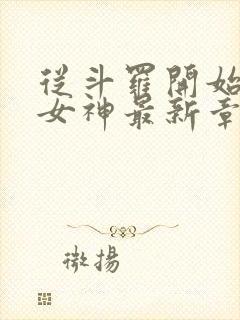 從斗羅開始
女神最新章
微揚